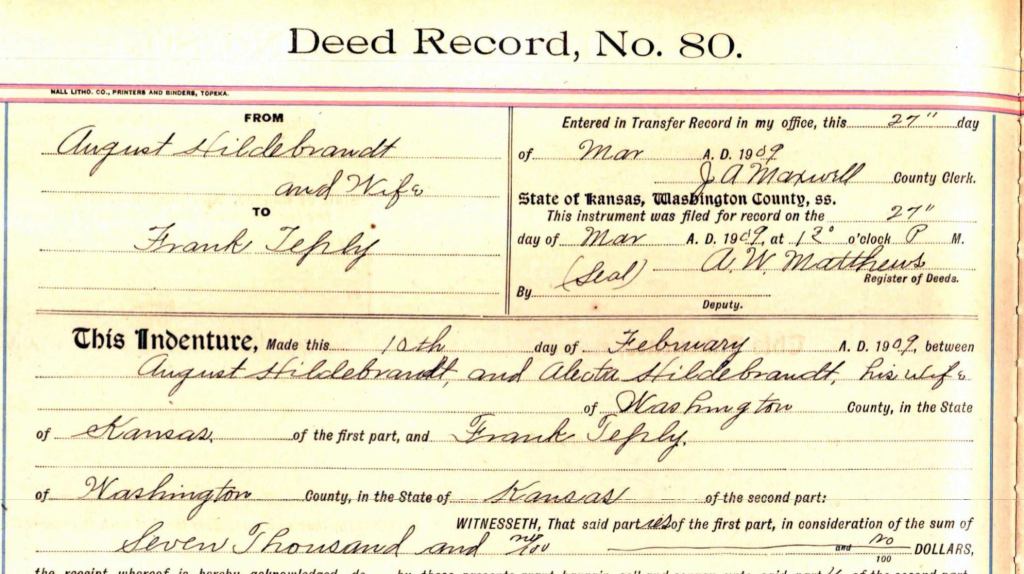 Deed Record, No. 80.
HALL LITHO. CO., PRINTERS AND BINDERS, TOPEKA.
FROM
August Hildebrandt
and Wife
TO
Frank Teply
Entered in Transfer Record in my office, this 27" day
of Mar A. D. 1909
J A Maxwell County Clerk.
State of Kansas, Washington County, ss.
This instrument was filed for record on the 27"
day of Mar A. D. 1909, at 1 o'clock P M.
(Seal) A. W. Matthews
Register of Deeds.
By
Deputy.
This Indenture, Made this 10th day of February A. D. 1909, between
August Hildebrandt, and Alecta Hildebrandt, his wife
of Washington County, in the State
of Kansas. of the first part, and Frank Teply.
of Washington County, in the State of Kansas of the second part:
WITNESSETH, That said parties of the first part, in consideration of the sum of
Seven Thousand and no/100 and no/100 DOLLARS,
the receipt whereof is hereby acknowledged, do by these presents grant, bargain, sell and convey unto said party of the second part,